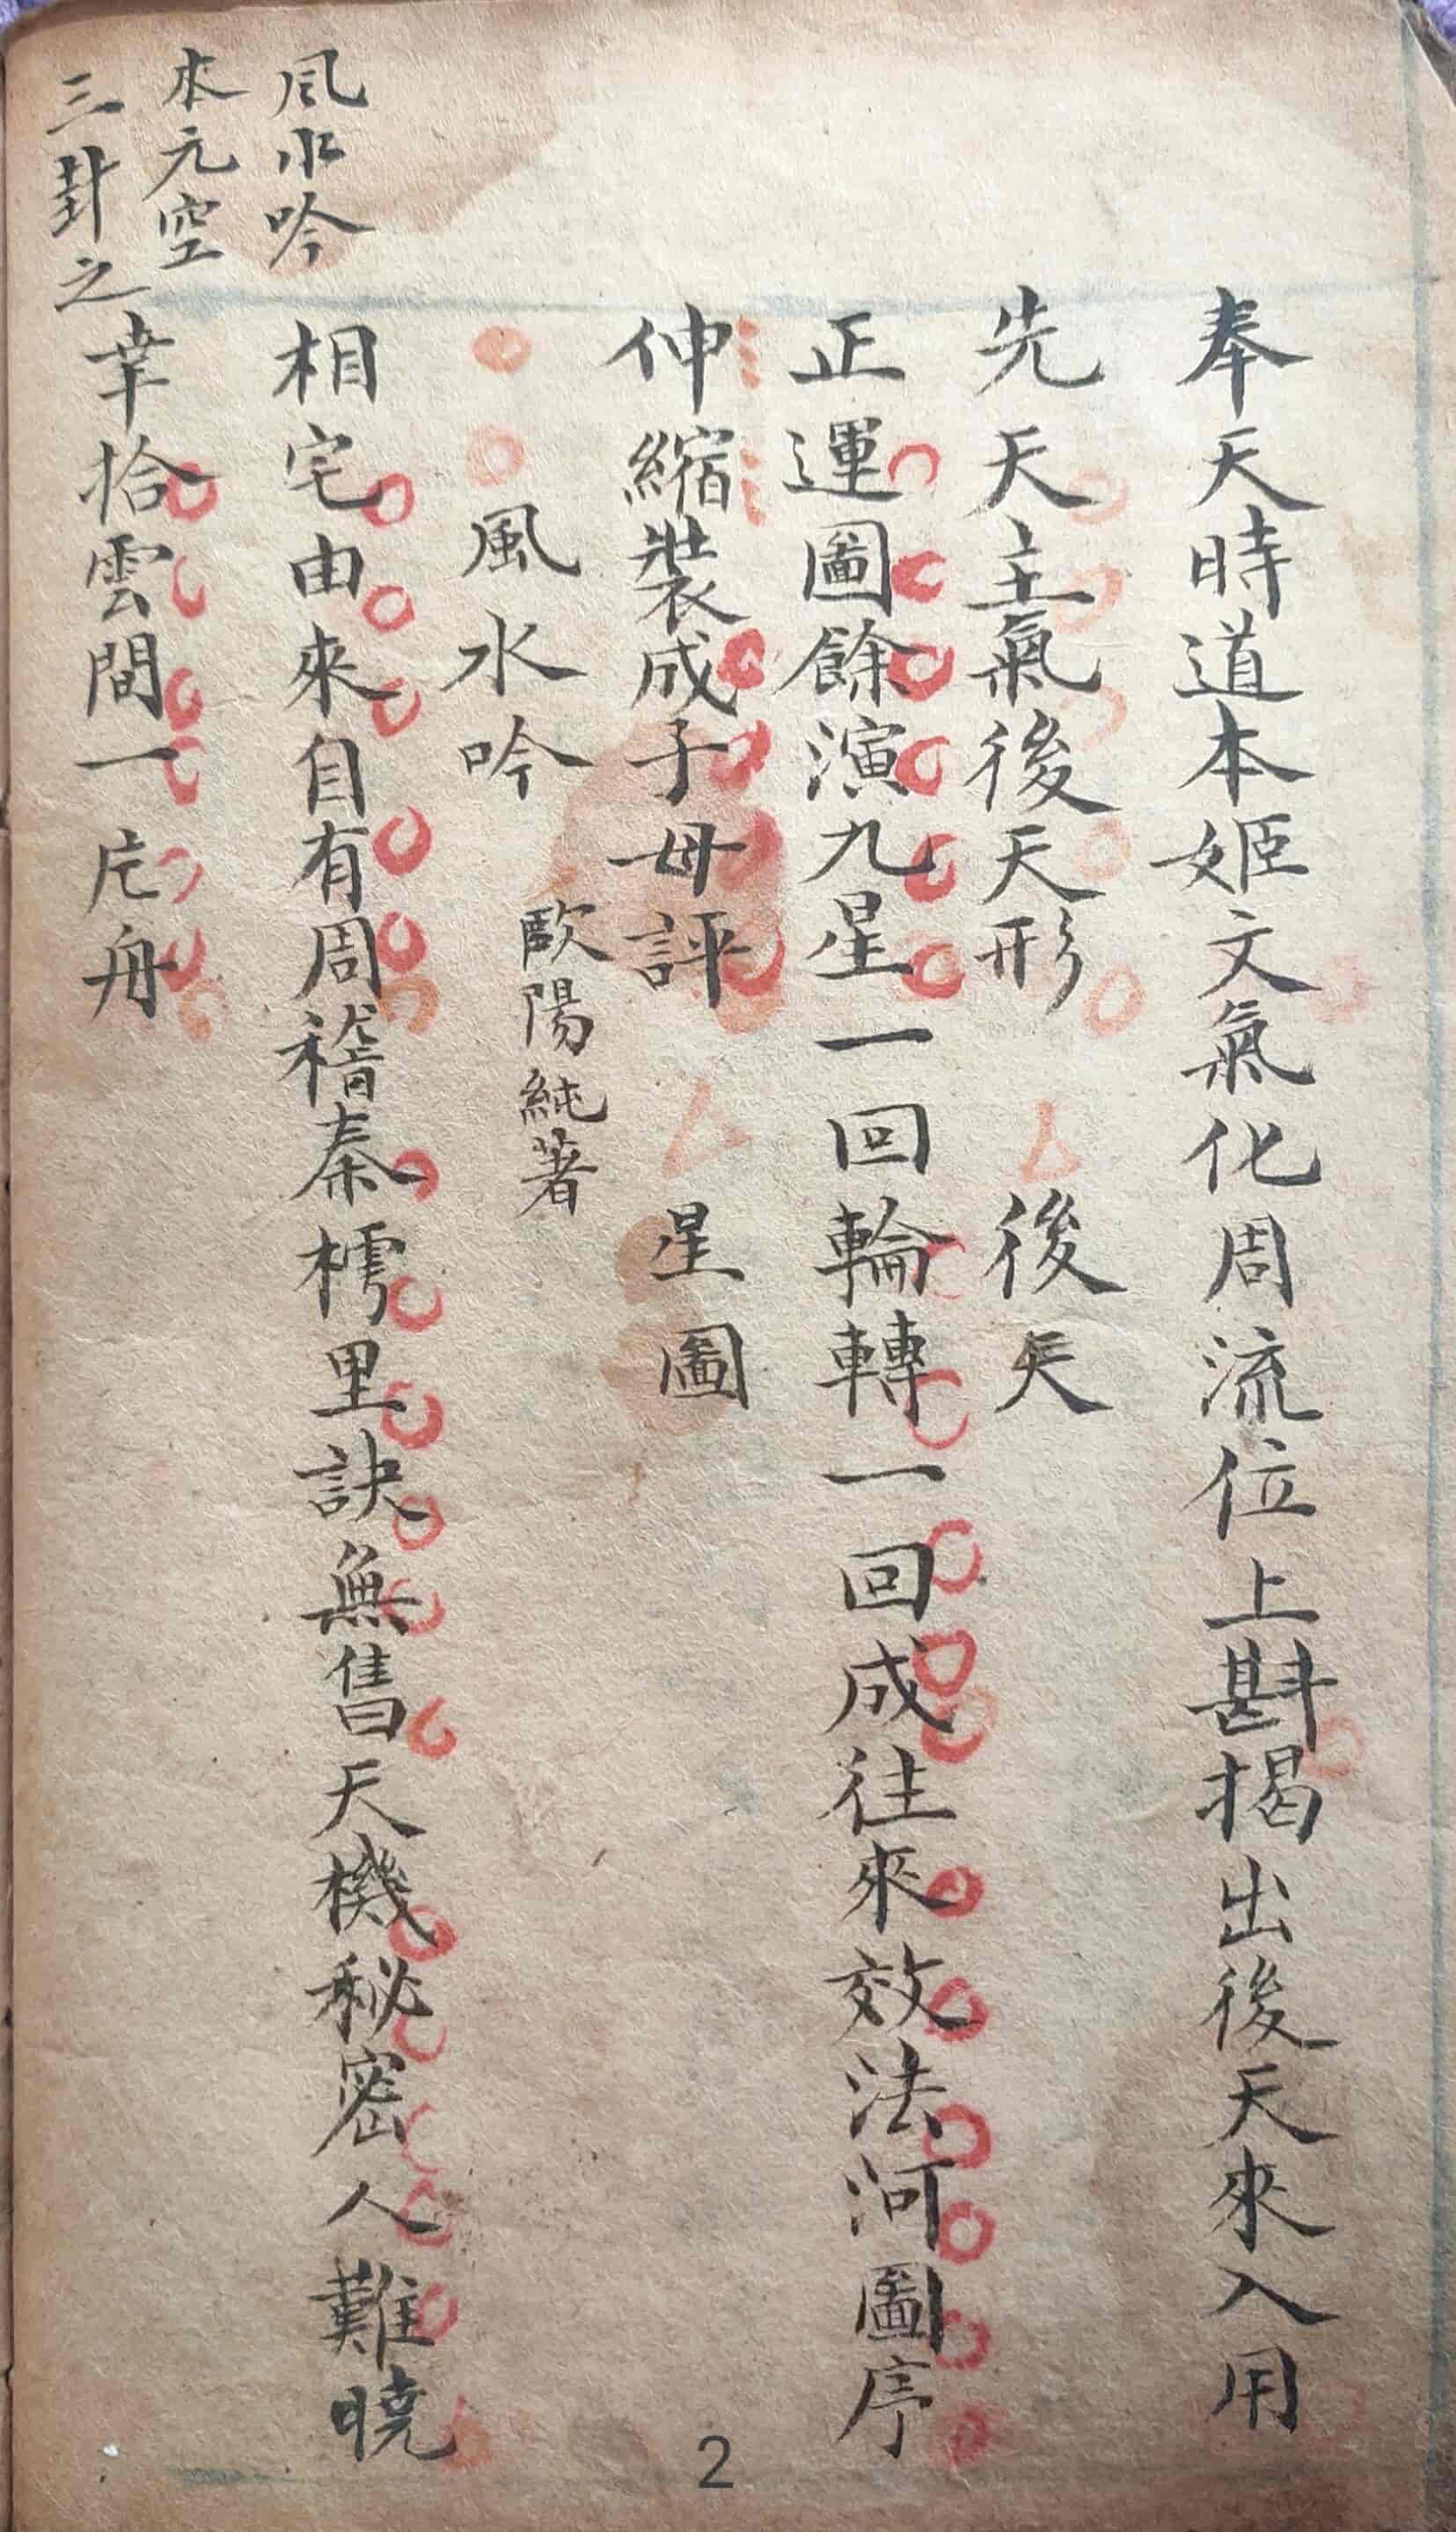 奉天時道本姬文氣化周流位上斟揭出後天來入用
先天主氣後天形 後天
正運圖餘演九星一回輪轉一回成往來效法河圖序
伸縮裝成子毋評 星圖
風水吟 歐陽純著
風水吟
本元空
三卦之
相宅由來自有周稽秦樗里訣無售天機秘密人難曉
幸拾雲間一片舟
2